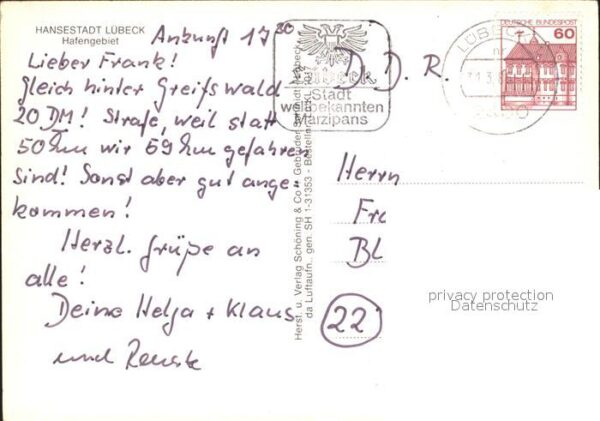 HANSESTADT LÜBECK
Hafengebiet
Ankunft 17 20
Lieber Frank!
Gleich hinter Greifswald
20 DM! Strafe, weil statt
50 Km wir 69 Km gefahren
sind! Sonst aber gut ange-
kommen!
Herzl. Grüße an
alle!
Deine Helga + Klaus
und
Herst. u. Verlag Schöning & Co + Gebrüder Schmidt, Lübeck
da Luftaufn., gen. SH 1-31353 - Bestellnr.
Lübeck
Stadt
weltbekannten
Marzipans
LÜBECK
DEUTSCHE BUNDESPOST
60
D. D. R.
Herrn
Fr
Bl
22
privacy protection
Datenschutz